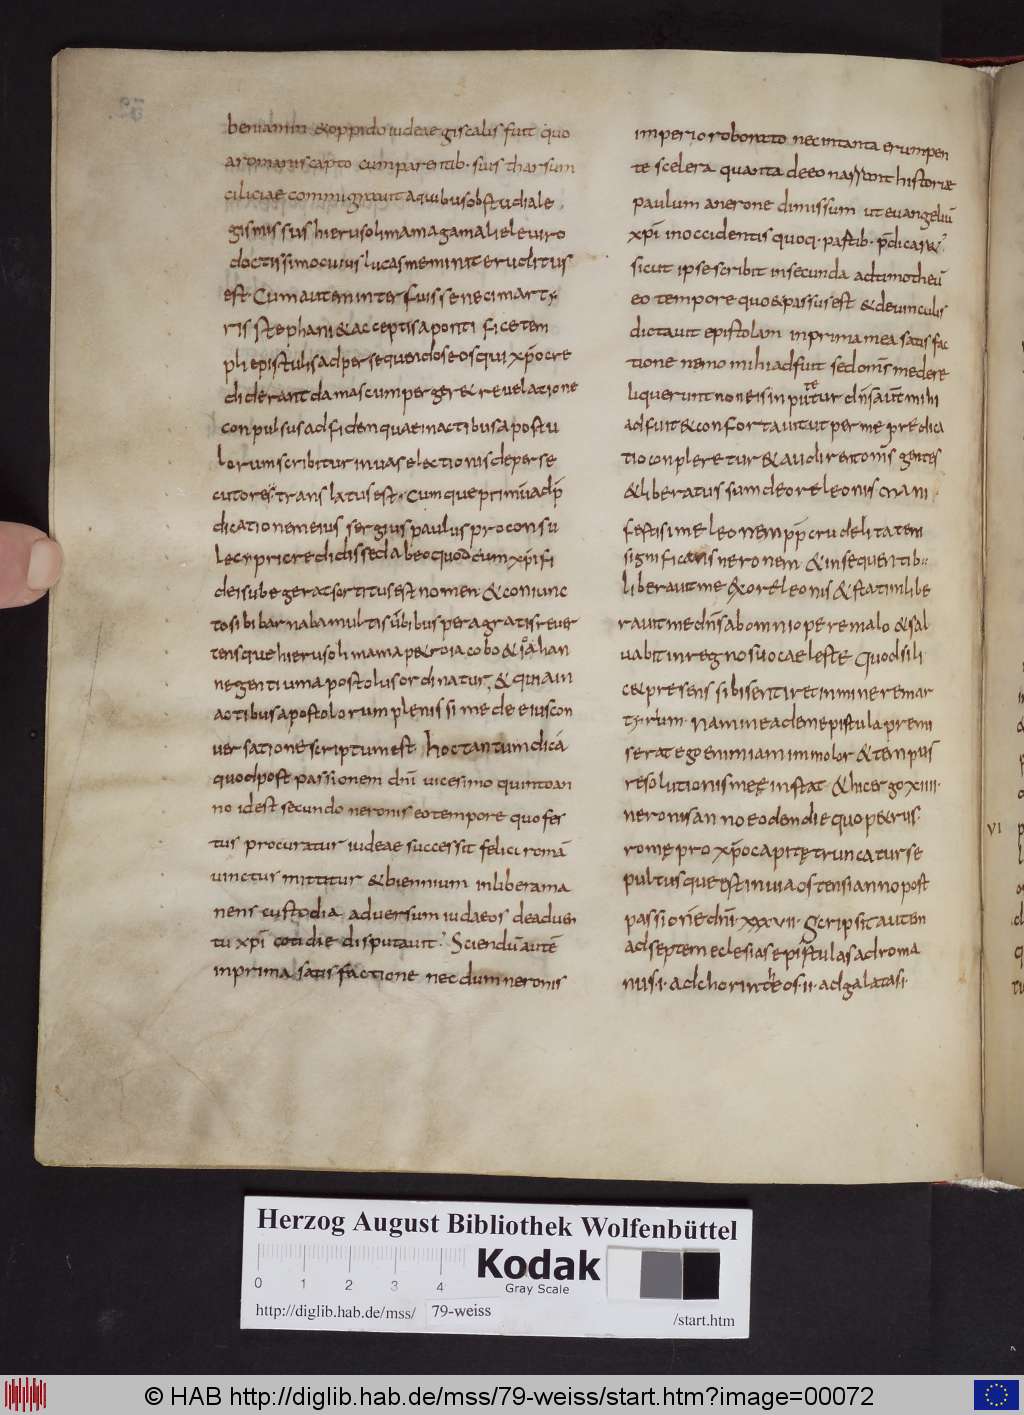 beniamin & oppido iudeae giscalis fuit quo
a romanis capto cum parentib· suis tharsum
ciliciae commigravit a quibus ob studia le
gis missus hierusolimam a gamaliele viro
doctissimo cuius lucas meminit eruditus
est Cum autem interfuisset neci marty
ris stephani & acceptis a pontifice tem
pli epistulis ad persequendos eos qui xp̄o cre
diderant damascum perger& revelatione
conpulsus ad fidem quae in actibus apostu
lorum scribitur in vas electionis de perse
cutore translatus est· Cumque primū ad p̄
dicationem eius sergius paulus proconsu
le cypri credidisset ab eo quod eum xp̄i fi
dei subegerat sortitus est nomen & coniunc
to sibi barnaba multis ūbibus peragratis rever
tensque hierusolimam a p&ro iacobo & iohan
ne gentium apostolus ordinatur, & quia in
actibus apostolorum plenissime de eius con
versatione scriptum est hoc tantum dicā
quod post passionem dn̄i vicesimo quinto an
no id est secundo neronis eo tempore quo fes
tus procuratur iudeae successit felici romā
vinctus mittitur & biennium in libera ma
nens custodia adversum iudaeos de adven
tu xp̄i cotidie disputavit· Sciendū autē
in prima satisfactione necdum neronis
imperio roborato nec in tanta erumpen
te scelera quanta de eo narrant historiae
paulum a nerone dimissum ut evangeliū
xp̄i in occidentis quoq· partib· p̄dicar&
sicut ipse scribit in secunda ad timotheū
eo tempore quo & passus est & de vinculis
dictavit epistolam in prima mea satisfac
tione nemo mihi adfuit sed om̄s me dere
liquerunt non eis inputetur dn̄s aut̄ mihi
adfuit & confortavit ut per me predica
tio conpleretur & audirent om̄s gentes
& liberatus sum de ore leonis mani
festissime leonem pp̄ crudelitatem
significans neronem· & in sequentib·
liberavit me & ore leonis & statim libe
ravit me dn̄s ab omni opere malo & sal
vabit in regno suo caeleste Quod sili
c& presens sibi sentiret inminere mar
tyrium· nam in eadem epistula premi
serat ego enim iam immolor & tempus
resolutionis meę instat & hic ergo xiiii·
neronis anno eodem die quo p&rus·
romę pro xp̄o capitę truncatur se
pultusque est in via ostensi anno post
passionē dn̄i· xxxvii· Scripsit autem
ad septem eclesias epistulas ad roma
nus·i· ad chorintheos·ii· ad galatas·i·
VI
Herzog August Bibliothek Wolfenbüttel
0 1 2 3 4
Kodak
Gray Scale
http://diglib.hab.de/mss/ 79-weiss /start.htm
© HAB http://diglib.hab.de/mss/79-weiss/start.htm?image=00072